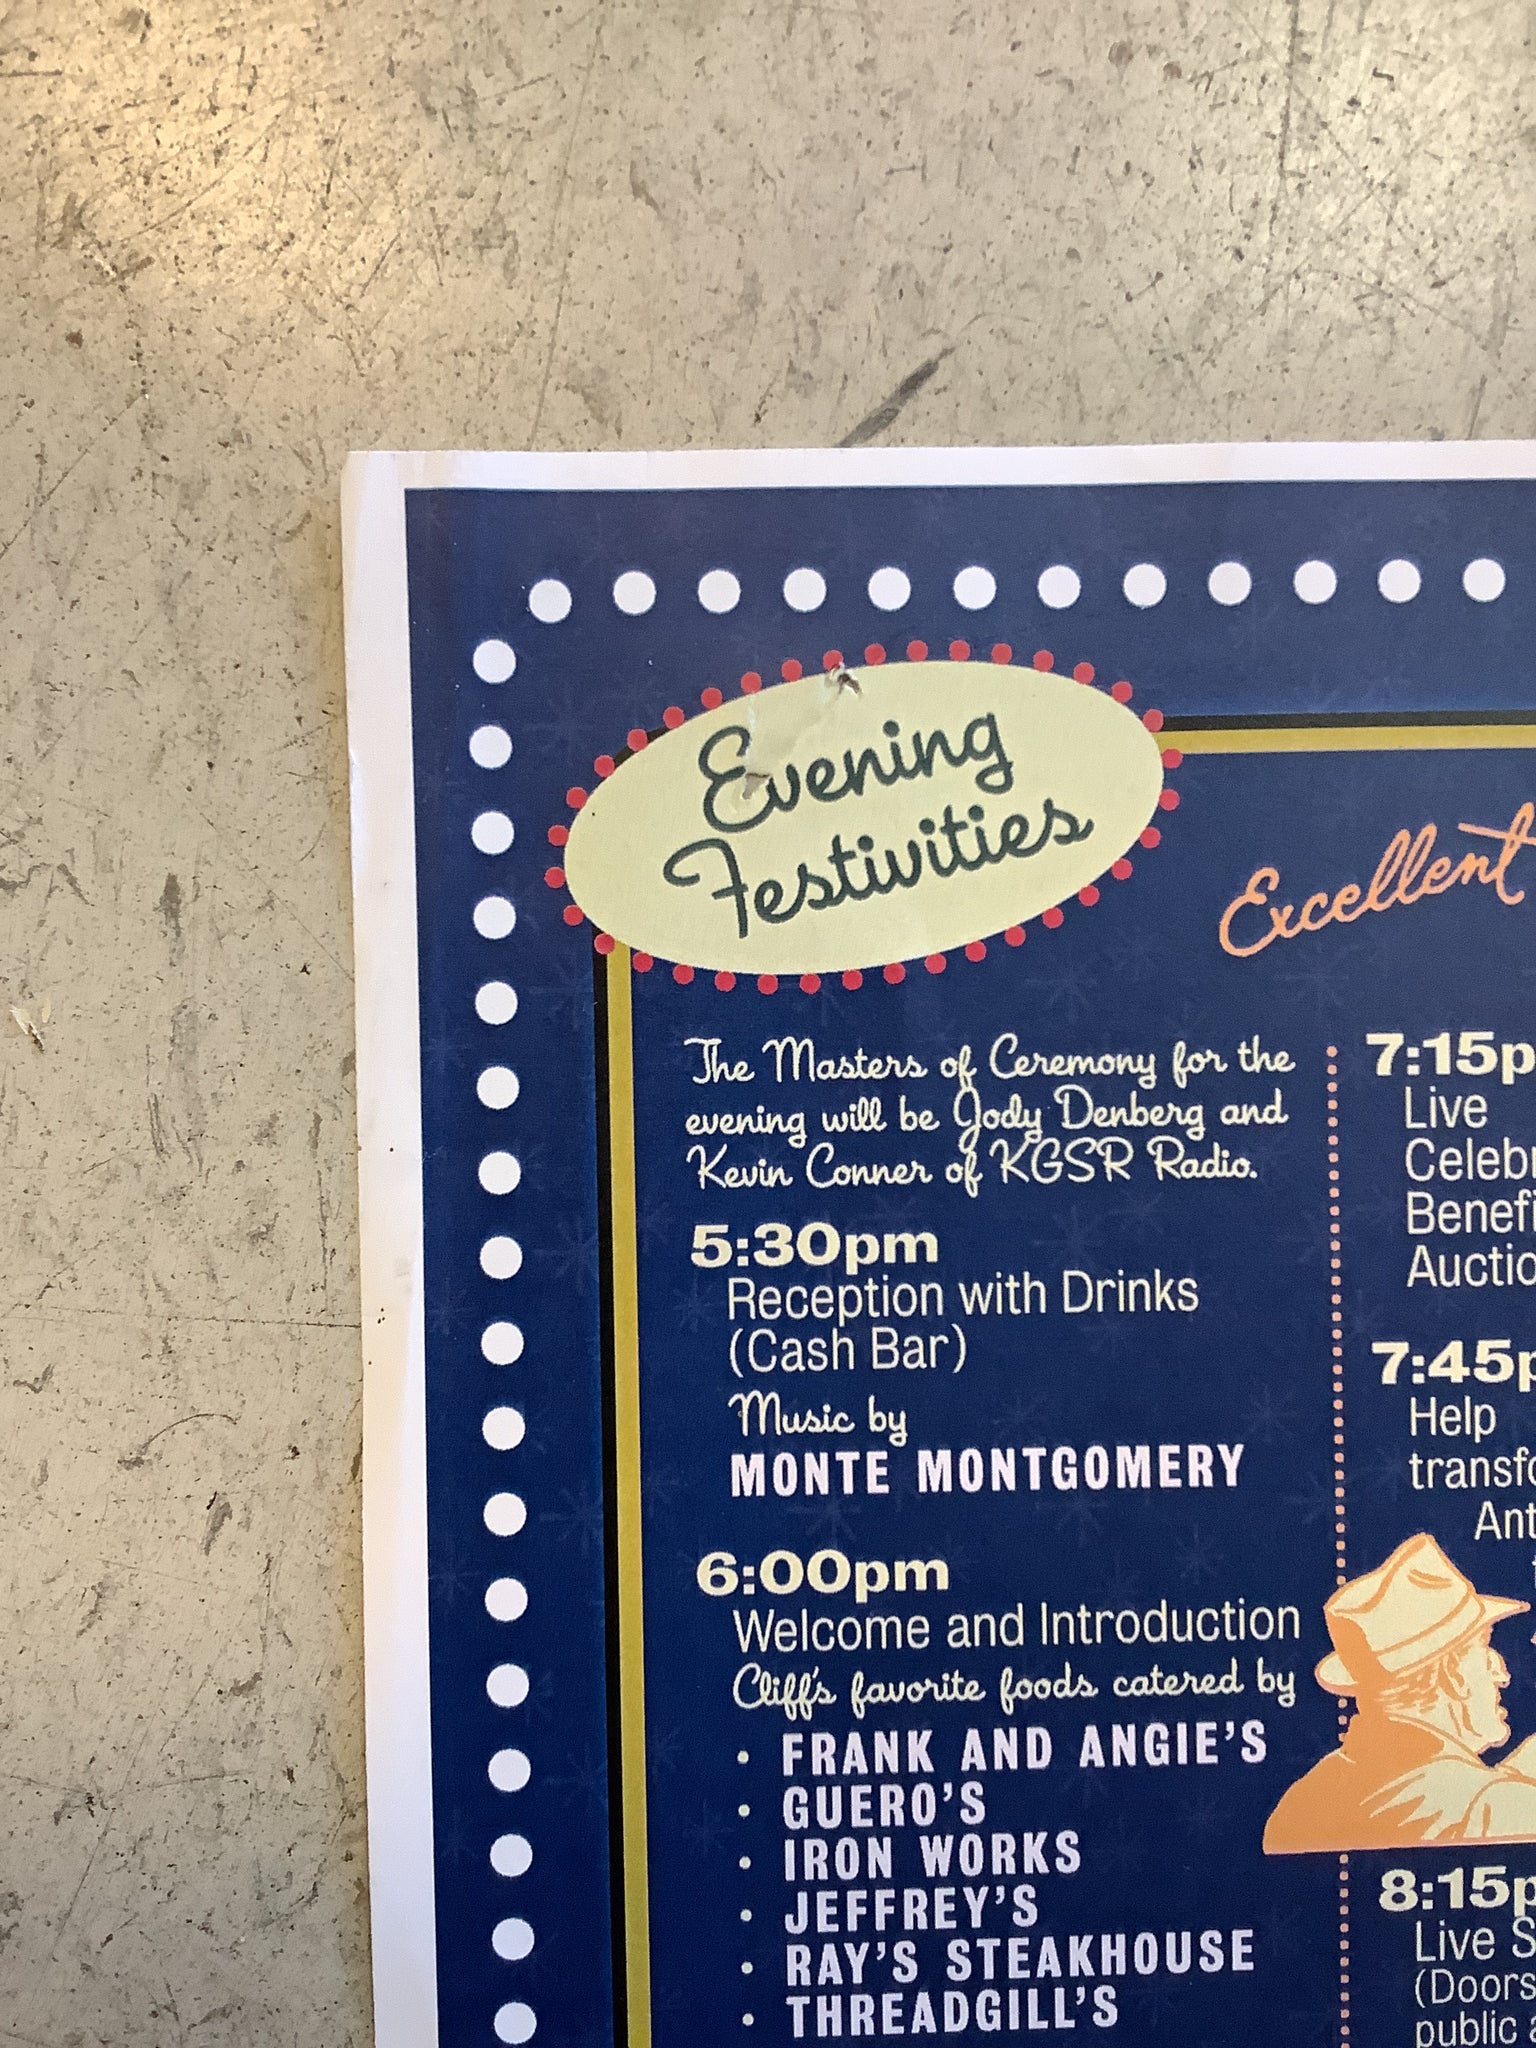 Evening
Festivities
Excellent
The Masters of Ceremony for the
evening will be Jody Denberg and
Kevin Conner of KGSR Radio.
5:30pm
Reception with Drinks
(Cash Bar)
Music by
MONTE MONTGOMERY
6:00pm
Welcome and Introduction
Cliff's favorite foods catered by
• FRANK AND ANGIE'S
• GUERO'S
• IRON WORKS
• JEFFREY'S
• RAY'S STEAKHOUSE
• THREADGILL'S
7:15p
Live
Celebr
Benefi
Auctio
7:45p
Help
transfo
Ant
8:15p
Live S
(Doors
public a